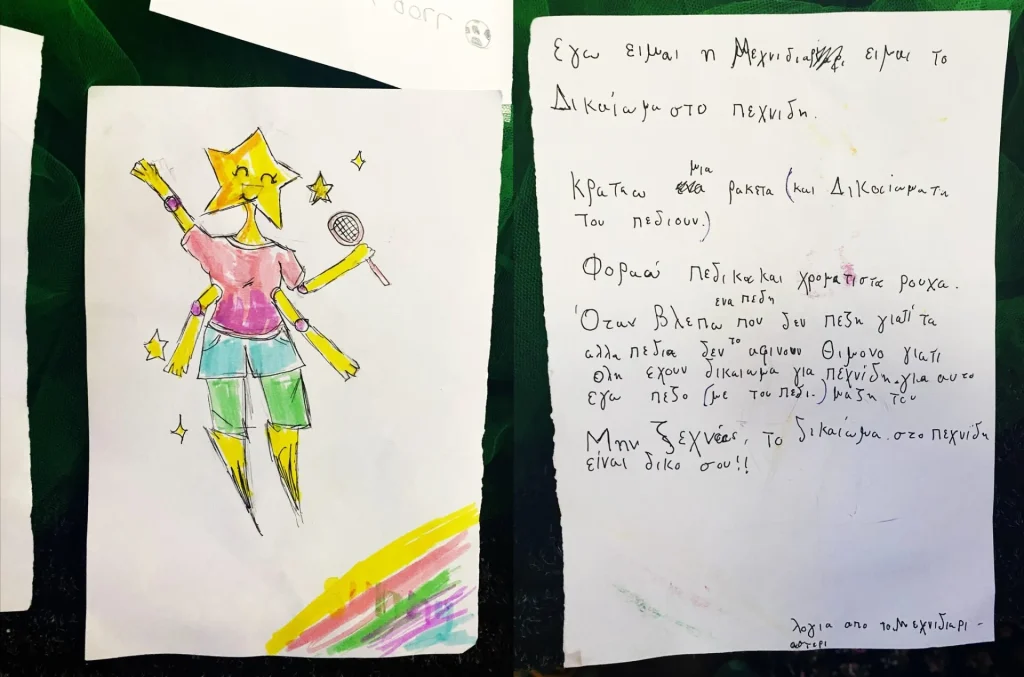 Εγω ειμαι η Μεχνιδιαρ ειμαι το
Δικαίωμα στο πεχνιδη.
μια
Κρατεω ρακετα (και Δικαιώματη
του πεδιουν.)
Φοραω πεδικα και χροματιστα ρουχα.
ενα πεδη
Όταν βλεπω που δεν πεζη γιατί τα
αλλα πεδια δεν το αφινουν θιμονο γιατι
ολη εχουν δικαιωμα για πεχνίδη. για αυτο
εγω πεζο (με του πεδι.) μαζη του
Μην ξεχνάς, το δικαίωμα στο πεχνιδη
είναι δικο σου!!
λογια απο το Μεχνιδιαρι -
αστερι